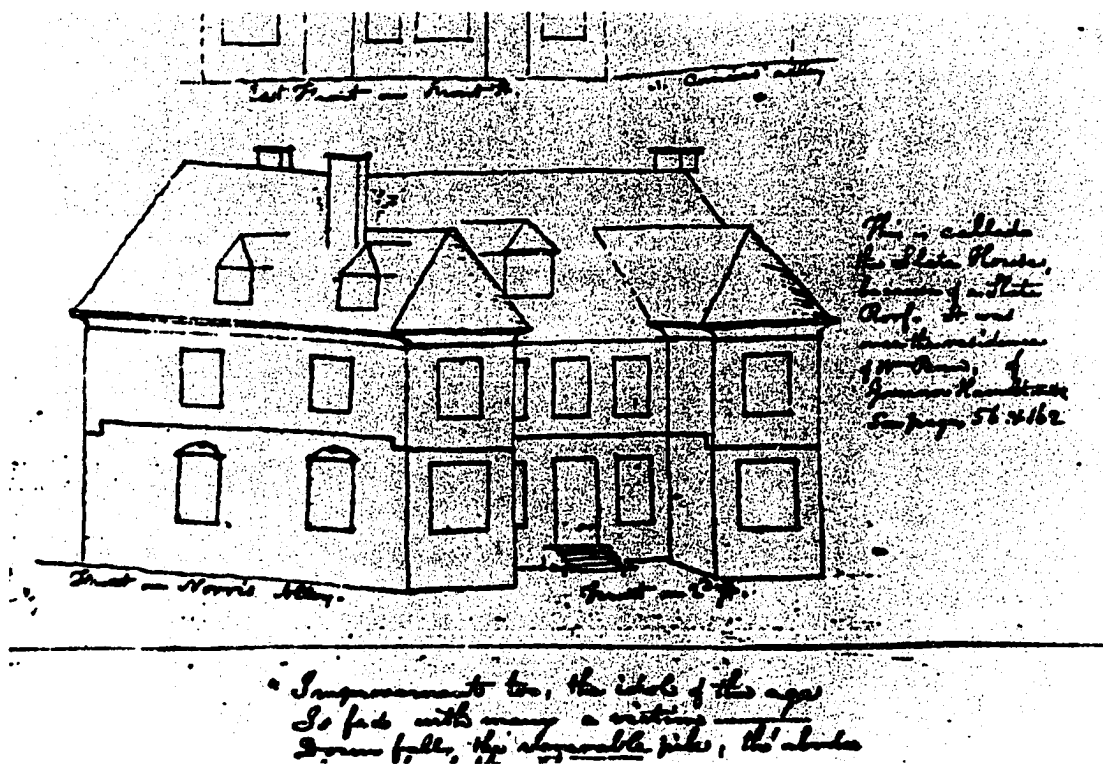 East Front on Front St.
Carters' alley
This is called
the Slate House,
because of a Slate
Roof. It was
once the residence
of Wm Penn, of
Governor Hamilton &c
See page 56 & 162
Front on Norris Alley.
Front on 2d St.
"Improvements too, the idol of the age
Is fed with many a victim
Down falls the venerable pile, the abodes